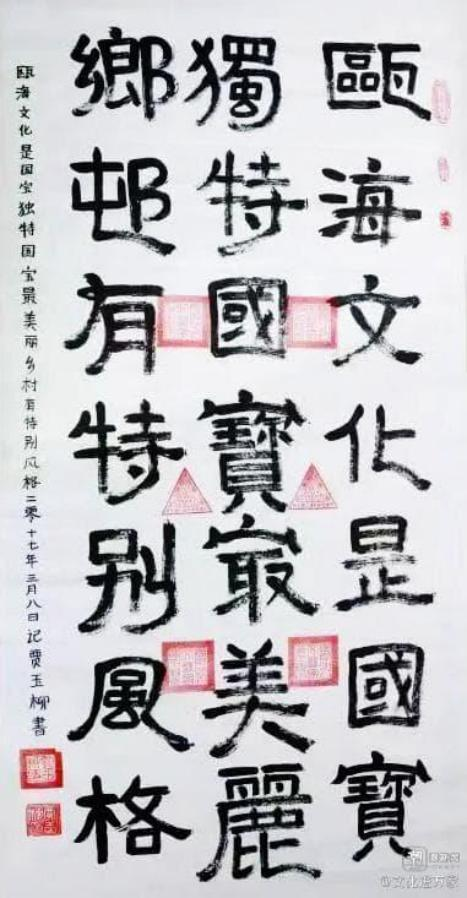 甌海文化是國寶
獨特國寶最美麗
鄉邨有特别風格
瓯海文化是国宝独特国宝最美丽乡村有特别风格二零十七年三月八日记贾玉柳書
@文化进万家